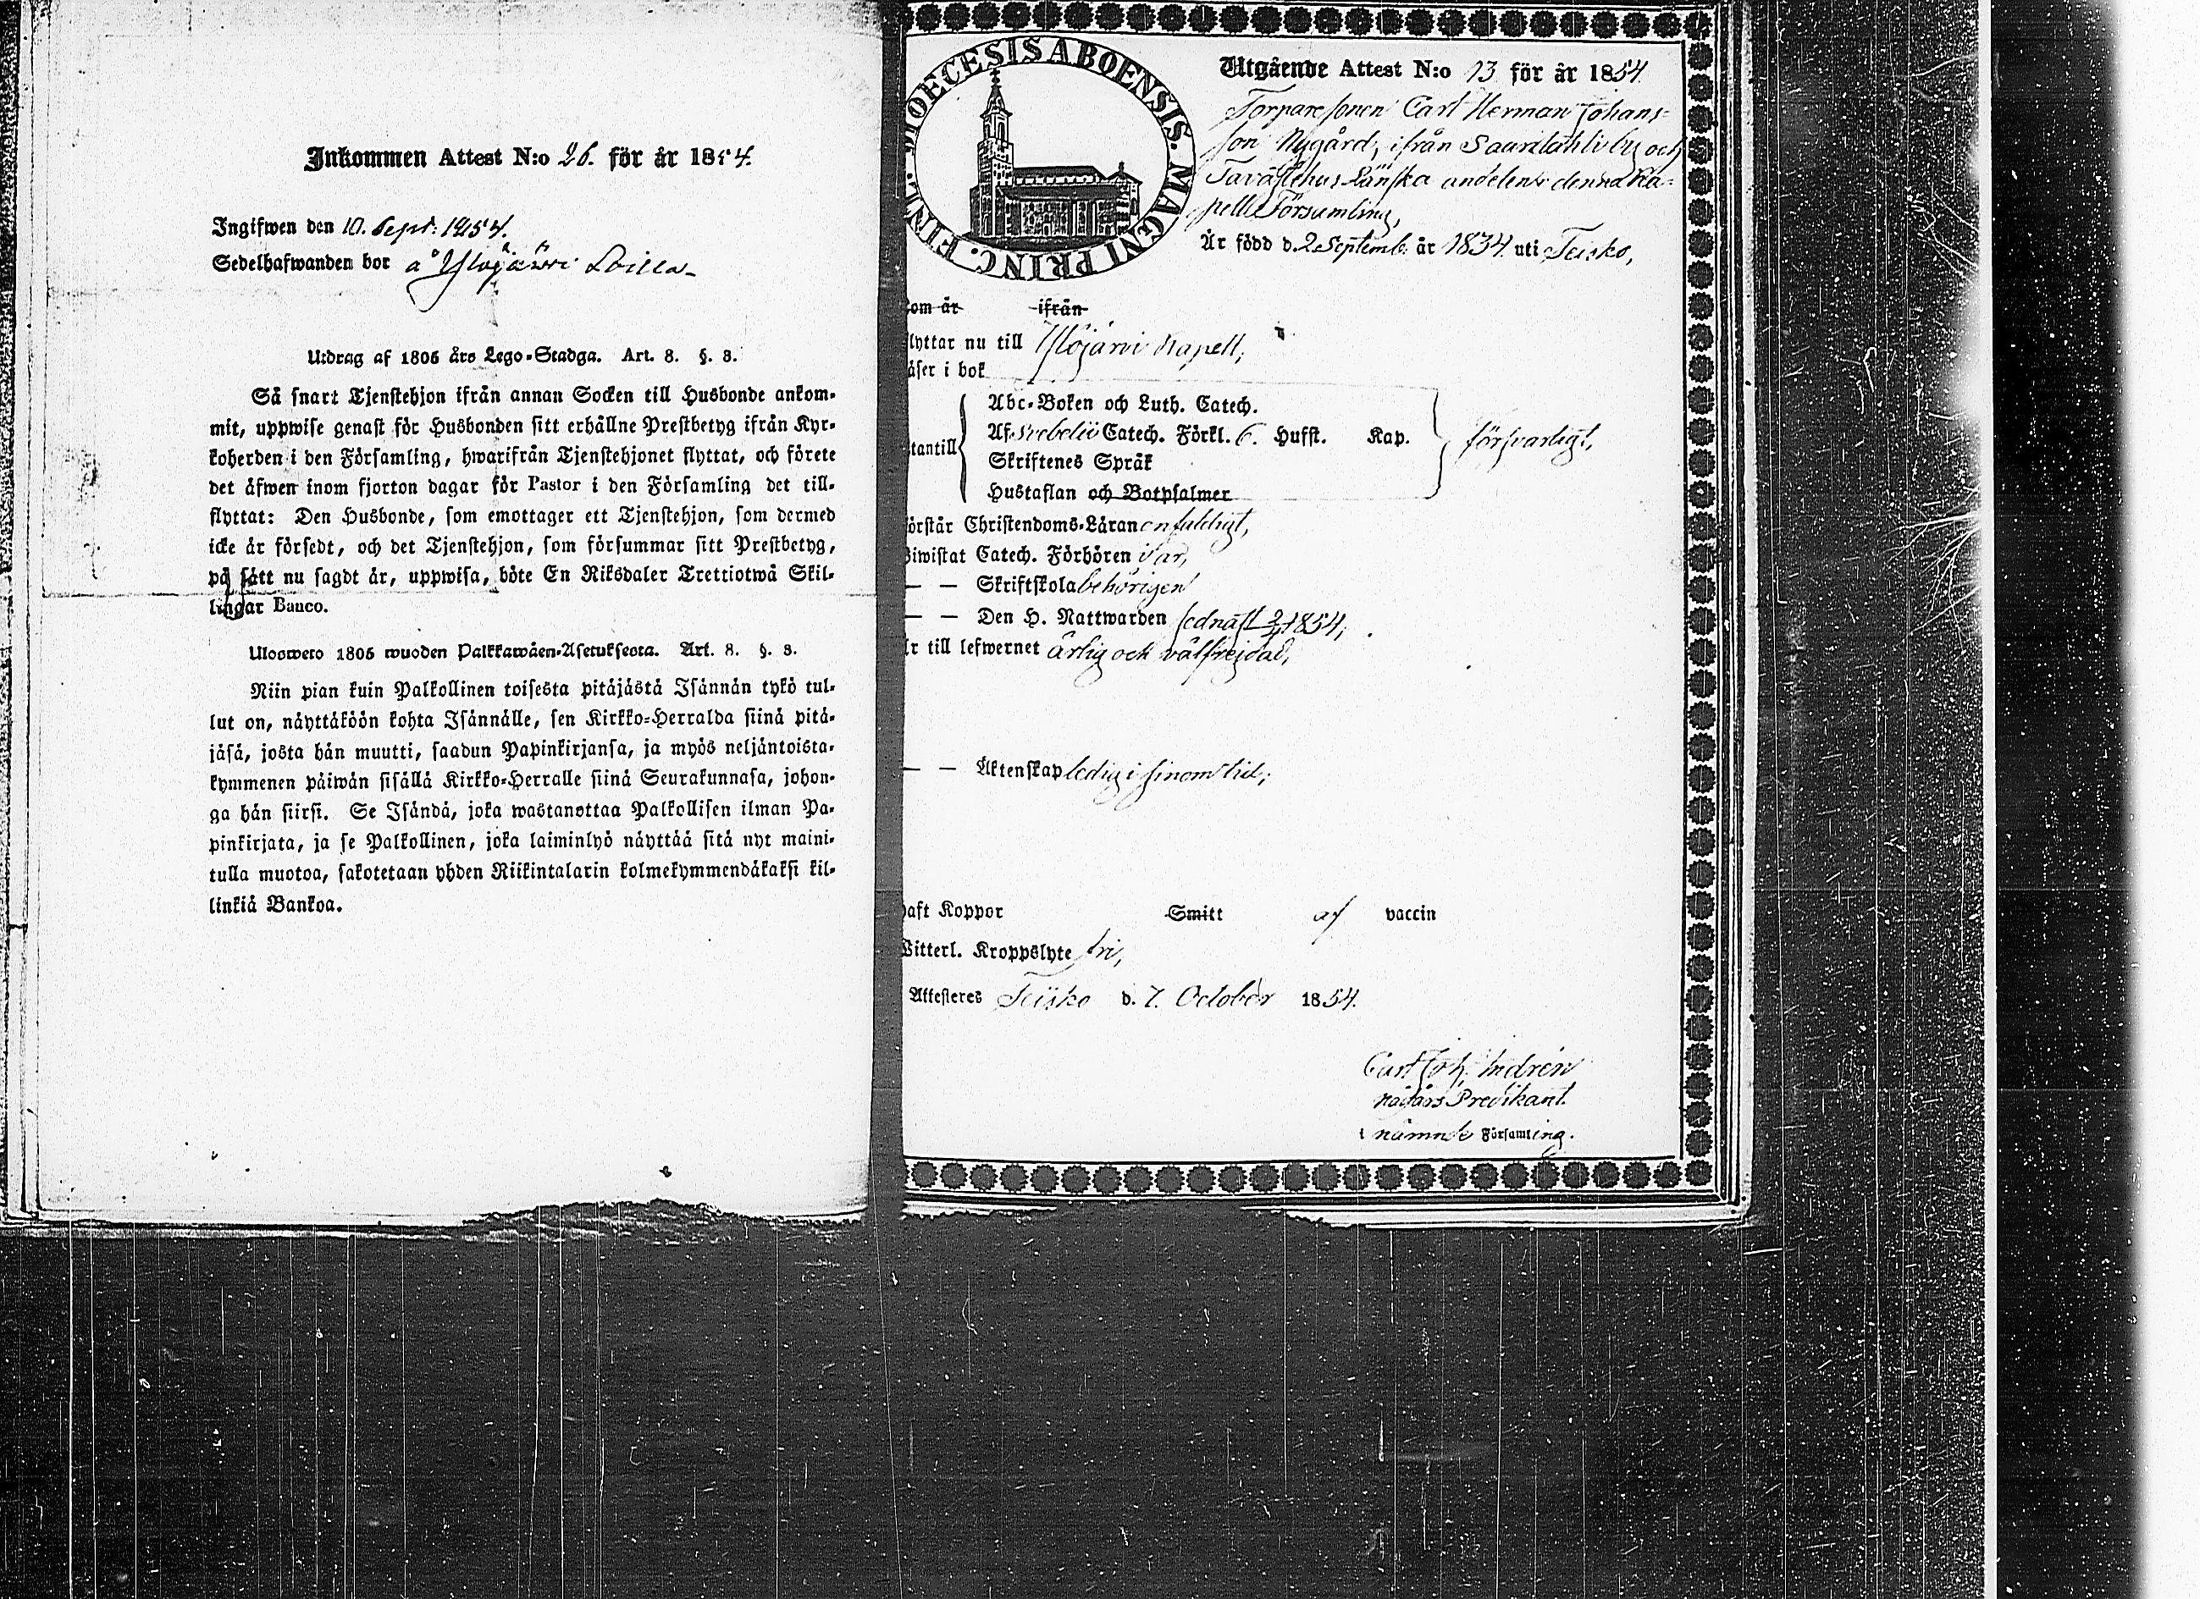 Inkommen Attest N:o 26. för år 1854.
Ingifwen den 10. Sept: 1854.
Sedelhafwanden bor å Ylöjärvi
Utdrag af 1805 års Lego-Stadga. Art. 8. §. 8.
Så snart Tjenstehjon ifrån annan Socken till Husbonde ankom-
mit, uppwise genast för Husbonden sitt erhållne Prestbetyg ifrån Kyr-
koherden i den Församling, hwarifrån Tjenstehjonet flyttat, och förete
det äfwen inom fjorton dagar för Pastor i den Församling det till-
flyttat: Den Husbonde, som emottager ett Tjenstehjon, som dermed
icke är försedt, och det Tjenstehjon, som försummar sitt Prestbetyg,
på sätt nu sagdt är, uppwisa, böte En Riksdaler Trettiotwå Skil-
lingar Banco.
Ulosweto 1805 wuoden Palkkawäen-Asetuksesta. Art. 8. §. 8.
Niin pian kuin Palkollinen toisesta pitäjästä Isännän tykö tul-
lut on, näyttäköön kohta Isännälle, sen Kirkko-Herralda siinä pitä-
jäsä, josta hän muutti, saadun Papinkirjansa, ja myös neljäntoista-
kymmenen päiwän sisällä Kirkko-Herralle siinä Seurakunnasa, johon-
ga hän siirsi. Se Isändä, joka wastanottaa Palkollisen ilman Pa-
pinkirjata, ja se Palkollinen, joka laiminlyö näyttää sitä nyt maini-
tulla muotoa, sakotetaan yhden Riikintalarin kolmekymmendäkaksi kil-
linkiä Bankoa.
DIOECESIS ABOENSIS. MAGNI PRINC. FINL.
Utgående Attest N:o 13 för år 1854.
Torparesonen Carl Herman Johans-
son Nygård, ifrån by och
Tavastehus Länska andelen i denna Ka-
pell Församling,
Är född d. 2 Septemb. år 1834 uti Teisko,
om år ifrån
lyttar nu till Ylöjärvi Kapell,
äser i bok
Abc-Boken och Luth. Catech.
Af Svebelii Catech. Förkl. 6. Hufst. Kap.
tantill Skriftenes Språk försvarligt,
Hustaflan och Botpsalmer
örstår Christendoms-Läran enfaldigt,
iwistat Catech. Förhören
— — Skriftskola behörigen
— — Den H. Nattwarden sednast 1854,
r till lefwernet ärlig och välfrejdad,
— — Äktenskap ledig i sinom tid,
haft Koppor Smitt af vaccin
Witterl. Kroppslyte fri,
Attesteres Teisko d. 7. October 1854.
Carl Joh. Indrén
nådårs Predikant.
i nämnde Församling.